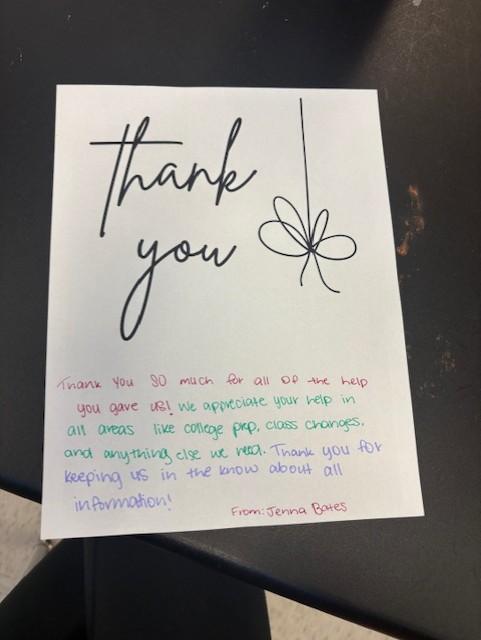 Thank
you
Thank you so much for all of the help
you gave us! We appreciate your help in
all areas like college prep, class changes,
and anything else we need. Thank you for
keeping us in the know about all
information!
From: Jenna Bates